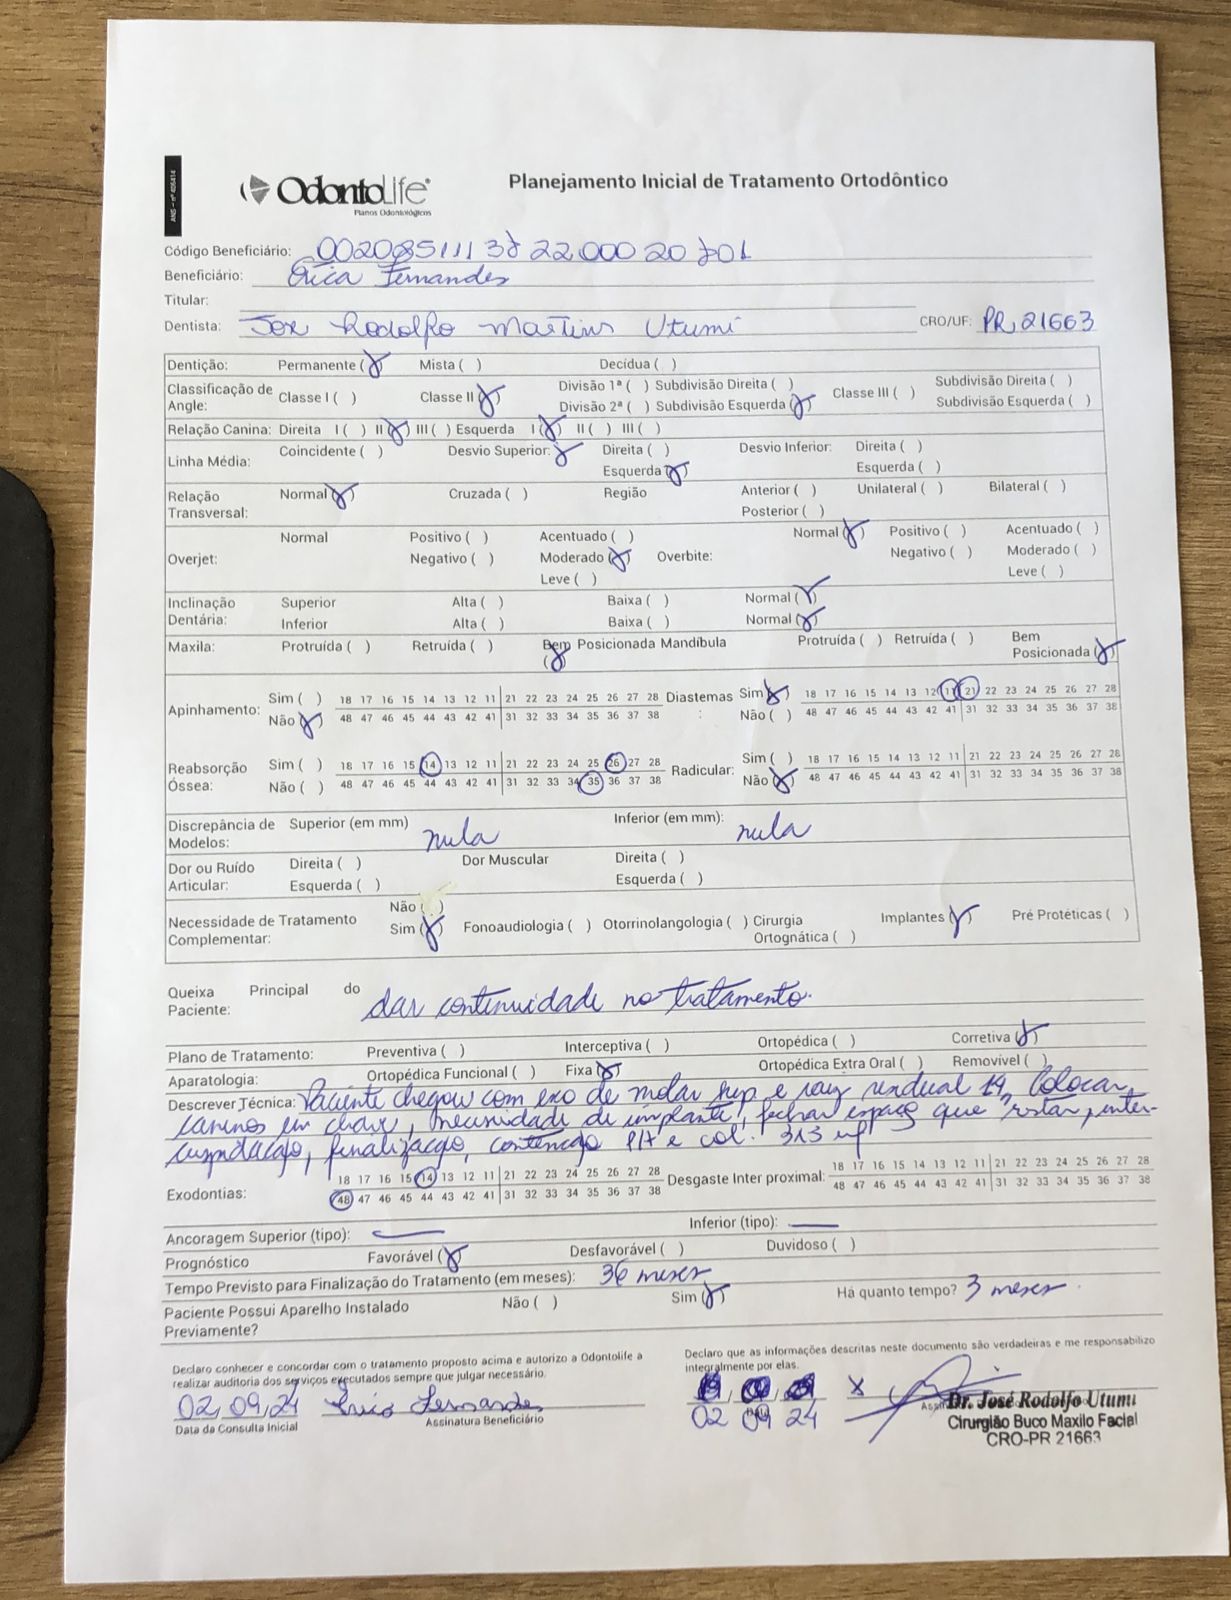 ANS - nº 406414
OdontoLife®
Planos Odontológicos
Planejamento Inicial de Tratamento Ortodôntico
Código Beneficiário:
Beneficiário: Erica Fernandes
Titular:
Dentista: Jose Rodolfo Martins Utumi CRO/UF: PR 21663
Dentição: Permanente (X) Mista ( ) Decídua ( )
Classificação de Angle: Classe I ( ) Classe II (X) Divisão 1ª ( ) Subdivisão Direita ( ) Classe III ( ) Subdivisão Direita ( )
Divisão 2ª ( ) Subdivisão Esquerda (X) Subdivisão Esquerda ( )
Relação Canina: Direita I ( ) II (X) III ( ) Esquerda I (X) II ( ) III ( )
Linha Média: Coincidente ( ) Desvio Superior: X Direita ( ) Desvio Inferior: Direita ( )
Esquerda (X) Esquerda ( )
Relação Transversal: Normal (X) Cruzada ( ) Região Anterior ( ) Unilateral ( ) Bilateral ( )
Posterior ( )
Overjet: Normal Positivo ( ) Acentuado ( ) Overbite: Normal (X) Positivo ( ) Acentuado ( )
Negativo ( ) Moderado (X) Negativo ( ) Moderado ( )
Leve ( ) Leve ( )
Inclinação Dentária: Superior Alta ( ) Baixa ( ) Normal (X)
Inferior Alta ( ) Baixa ( ) Normal (X)
Maxila: Protruída ( ) Retruída ( ) Bem Posicionada (X) Mandíbula Protruída ( ) Retruída ( ) Bem Posicionada (X)
Apinhamento: Sim ( ) 18 17 16 15 14 13 12 11 21 22 23 24 25 26 27 28 Diastemas: Sim (X) 18 17 16 15 14 13 12 11 21 22 23 24 25 26 27 28
Não (X) 48 47 46 45 44 43 42 41 31 32 33 34 35 36 37 38 Não ( ) 48 47 46 45 44 43 42 41 31 32 33 34 35 36 37 38
Reabsorção Óssea: Sim ( ) 18 17 16 15 14 13 12 11 21 22 23 24 25 26 27 28 Radicular: Sim ( ) 18 17 16 15 14 13 12 11 21 22 23 24 25 26 27 28
Não ( ) 48 47 46 45 44 43 42 41 31 32 33 34 35 36 37 38 Não (X) 48 47 46 45 44 43 42 41 31 32 33 34 35 36 37 38
Discrepância de Modelos: Superior (em mm) nula Inferior (em mm): nula
Dor ou Ruído Articular: Direita ( ) Dor Muscular Direita ( )
Esquerda ( ) Esquerda ( )
Necessidade de Tratamento Complementar: Não ( )
Sim (X) Fonoaudiologia ( ) Otorrinolangologia ( ) Cirurgia Ortognática ( ) Implantes (X) Pré Protéticas ( )
Queixa Principal do Paciente: dar continuidade no tratamento.
Plano de Tratamento: Preventiva ( ) Interceptiva ( ) Ortopédica ( ) Corretiva (X)
Aparatologia: Ortopédica Funcional ( ) Fixa (X) Ortopédica Extra Oral ( ) Removível ( )
Descrever Técnica: Paciente chegou com exo de molar sup e raiz residual 14, Colocar
caninos em chave, necessidade de implante, fechar espaço que restar, inter-
cuspidação, finalização, contenção P/A e col. 3x3 inf
Exodontias: 18 17 16 15 14 13 12 11 21 22 23 24 25 26 27 28 Desgaste Inter proximal: 18 17 16 15 14 13 12 11 21 22 23 24 25 26 27 28
48 47 46 45 44 43 42 41 31 32 33 34 35 36 37 38 48 47 46 45 44 43 42 41 31 32 33 34 35 36 37 38
Ancoragem Superior (tipo): — Inferior (tipo): —
Prognóstico Favorável (X) Desfavorável ( ) Duvidoso ( )
Tempo Previsto para Finalização do Tratamento (em meses): 36 meses
Paciente Possui Aparelho Instalado Previamente? Não ( ) Sim (X) Há quanto tempo? 3 meses.
Declaro conhecer e concordar com o tratamento proposto acima e autorizo a Odontolife a
realizar auditoria dos serviços executados sempre que julgar necessário.
02/09/24 Erica Fernandes
Data da Consulta Inicial Assinatura Beneficiário
Declaro que as informações descritas neste documento são verdadeiras e me responsabilizo
integralmente por elas.
X
02 09 24
Dr. José Rodolfo Utumi
Cirurgião Buco Maxilo Facial
CRO-PR 21663